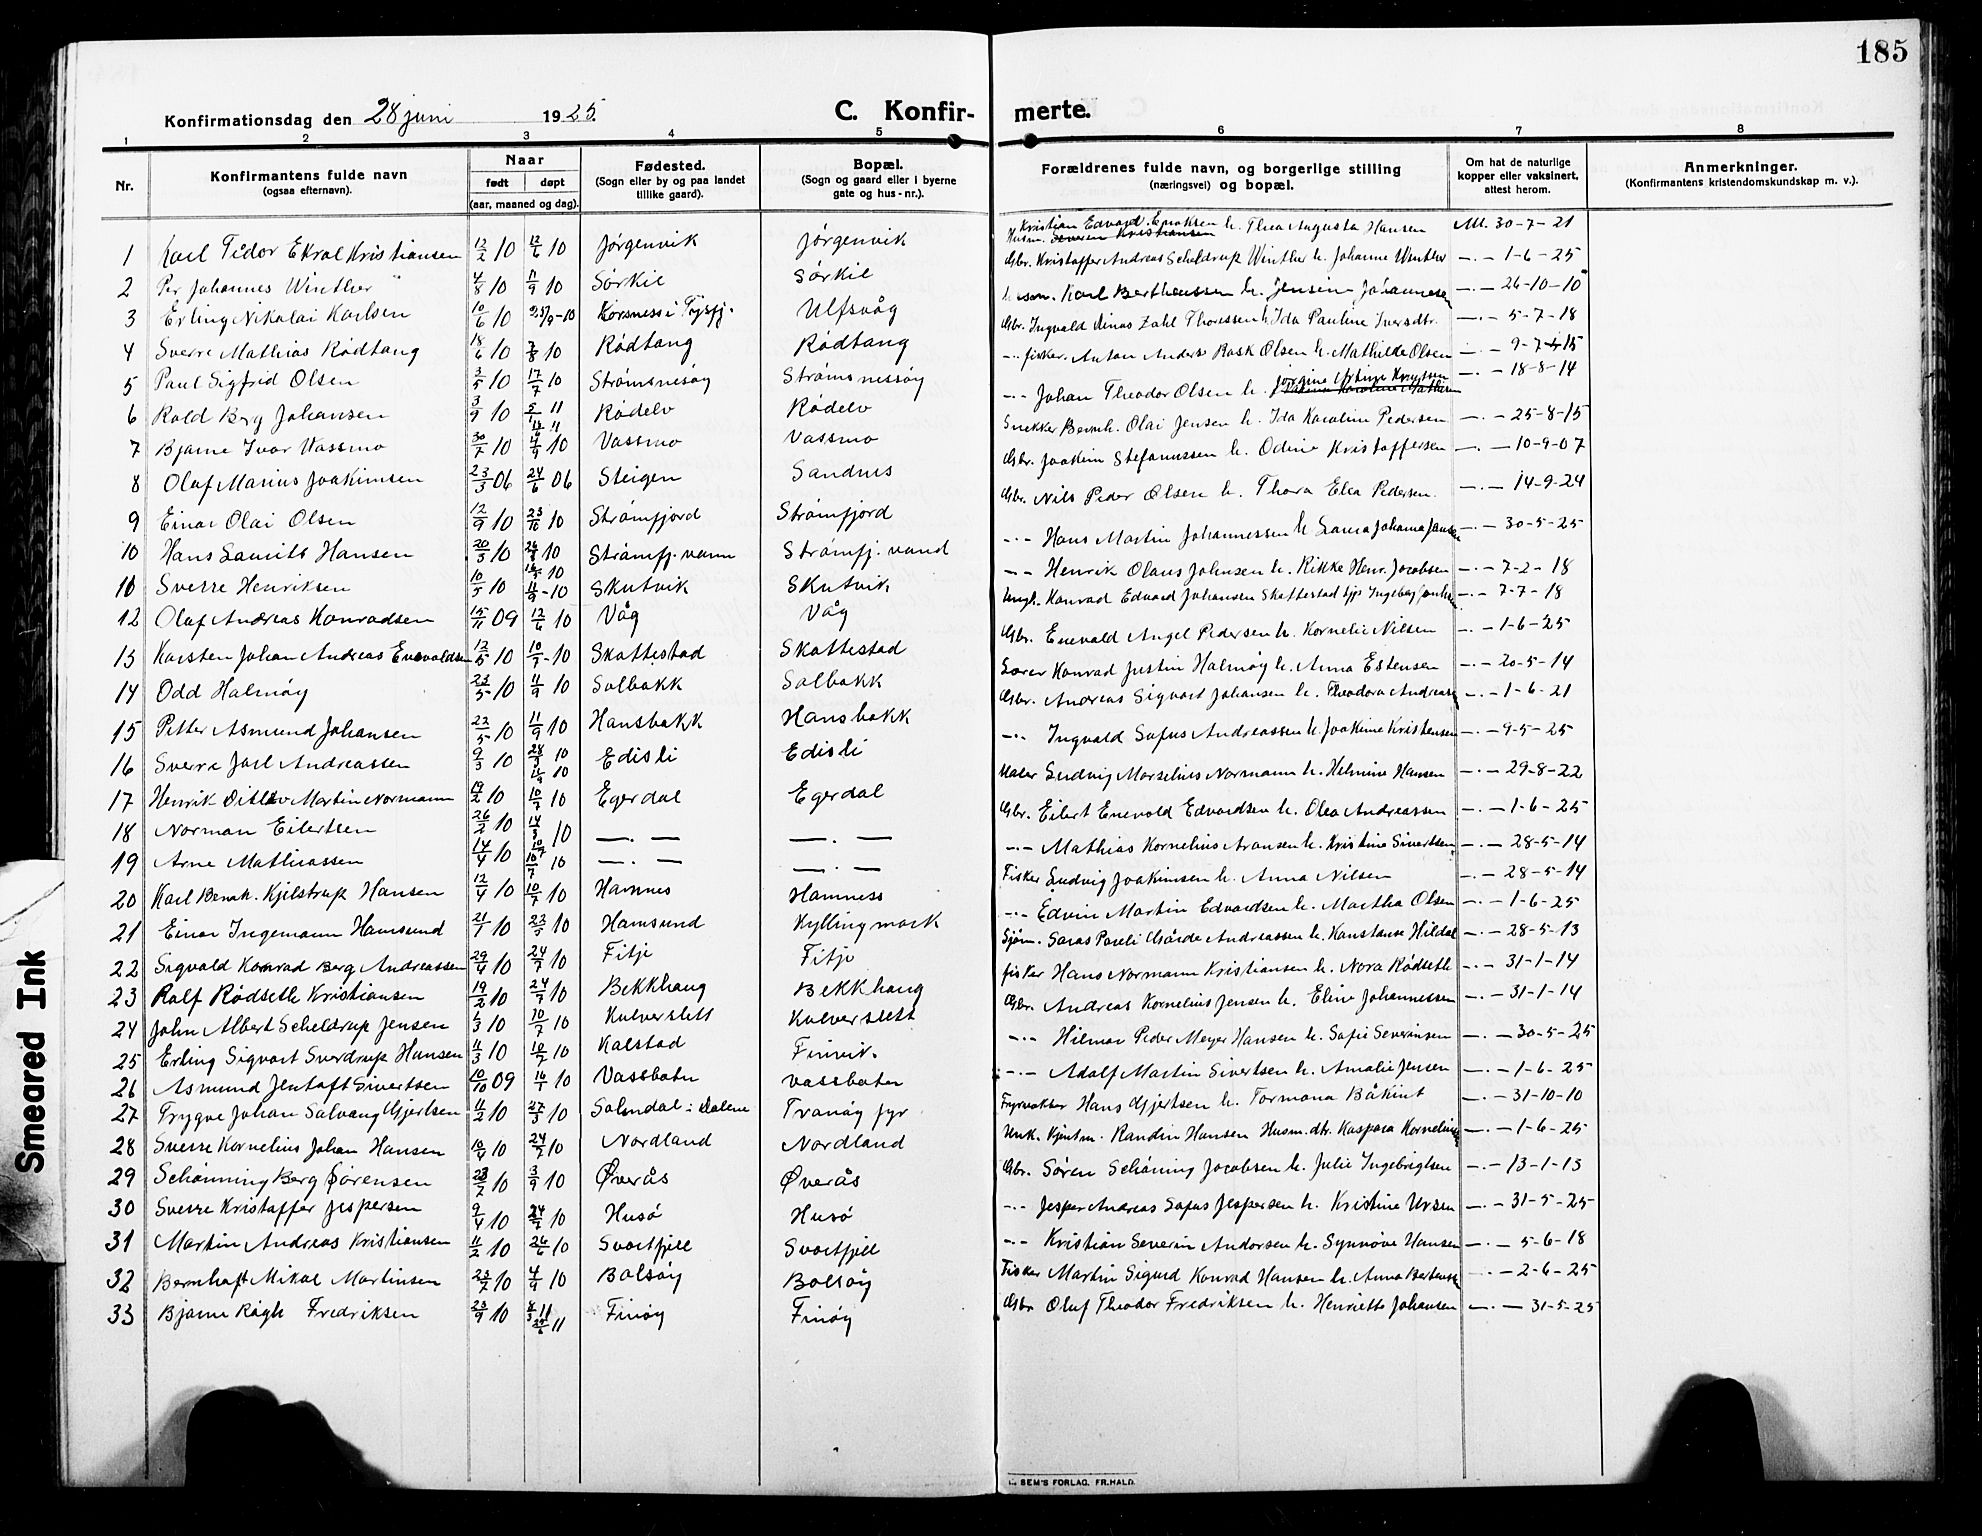 185
Konfirmationsdag den 28 juni 1925.
C. Konfir-merte.
1 2 3 4 5 6 7 8
Nr.
Konfirmantens fulde navn
(ogsaa efternavn).
Naar
født døpt
(aar, maaned og dag).
Fødested.
(Sogn eller by og paa landet
tillike gaard).
Bopæl.
(Sogn og gaard eller i byerne
gate og hus-nr.).
Forældrenes fulde navn, og borgerlige stilling
(næringsvei) og bopæl.
Om hat de naturlige
kopper eller vaksinert,
attest herom.
Anmerkninger.
(Konfirmantens kristendomskundskap m. v.).
1 Karl Tidor Ekral Kristiansen 12/2 10 12/6 10 Jørgenvik Jørgenvik Kristian Edvard Enoksen h. Thea Augusta Hansen Att. 30-7-21
2 Per Johannes Winther 4/8 10 11/9 10 Sørkil Sørkil Gbr. Kristoffer Andreas Scheldrup Winther h. Johanne Winther -.- 1-6-25
3 Erling Nikolai Karlsen 10/6 10 Korsness i Tysfj. Ulfsvåg Karl Bertheussen h. Jensine Johannesen -.- 26-10-10
4 Sverre Mathias Rødtang 18/6 10 7/8 10 Rødtang Rødtang Gbr. Ingvald Dinas Zahl Thoressen h. Ida Pauline Iversdtr. -.- 5-7-18
5 Paul Sigfrid Olsen 3/5 10 17/7 10 Strømsnesøy Strømsnessøy -.- fisker. Anton Anders Rask Olsen h. Mathilde Olsen -.- 9-7-15
6 Rold Berg Johansen 3/9 10 5/1 11 Rødelv Rødelv -.- Johan Theodor Olsen h. Jørgine Arline Knutsen -.- 18-8-14
7 Bjarne Ivar Vassmo 30/7 10 4/9 10 Vassmo Vassmo Snekker Bernh. Olai Jensen h. Ida Karoline Pedersen -.- 25-8-15
8 Olaf Marius Joakimsen 23/3 06 24/6 06 Steigen Sandnes Gbr. Joakim Stefanussen h. Odine Kristoffersen -.- 10-9-07
9 Einar Olai Olsen 12/9 10 23/10 10 Strømfjord Strømfjord Gbr. Nils Peder Olsen h. Thora Elea Pedersen. -.- 14-9-24
10 Hans Laurits Hansen 20/3 10 Strømfj.vann Strømfj.vand -.- Hans Martin Johannessen h. Laura Johanna -.- 30-5-25
10 Sverre Henriksen 10/5 10 11/9-10 Skutvik Skutvik -.- Henrik Olaus Johnsen h. Rikke Henr. Jacobsen -.- 7-2-18
12 Olaf Andreas Konradsen 15/11 09 12/6 10 Våg Våg Ungk. Konrad Edvard Johansen Skottestad -.- 7-7-18
13 Karsten Johan Andreas Enevoldsen 12/5 10 10/7-10 Skottestad Skottestad Gbr. Enevald Angel Pedersen h. Kornelie Nilsen -.- 1-6-25
14 Odd Halmøy 23/5 10 11/9 10 Solbakk Solbakk Lærer Konrad Justin Halmøy h. Anna Estensen -.- 20-5-14
15 Petter Asmund Johansen 22/5 10 11/9 10 Hansbakk Hansbakk Gbr. Andreas Sigvart Johansen h. Theodora Andreas -.- 1-6-21
16 Sverre Jarl Andreassen 9/3 10 Edisli Edisli -.- Ingvald Sofus Andreassen h. Joakime Kristensen -.- 9-5-25
17 Henrik Ditlev Martin Normann 10/7 10 Egerdal Egerdal Maler Ludvig Marselius Normann h. Helmine Hansen -.- 29-8-22
18 Norman Eilertsen 26/2 10 -.- -.- Gbr. Eilert Enevold Edvardsen h. Olea Andreassen -.- 1-6-25
19 Arne Mathiassen 14/4 10 10/7 10 -.- -.- -.- Mathias Kornelius Aronsen h. Kristine Sivertsen -.- 28-5-14
20 Karl Bernh. Kjelstrup Hansen 12/4 10 10/7 10 Hamnes Hamness Fisker Ludvig Joakimsen h. Anna Nilsen -.- 28-5-14
21 Einar Ingemann Hamsund 21/1 10 Hamsund Kyllingmark -.- Edvin Martin Edvardsen h. Martha Olsen -.- 1-6-25
22 Sigvald Konrad Berg Andreassen 29/4 10 24/7 10 Fitje Fitje Sjøm. Andreassen h. Konstanse Hildal -.- 28-5-13
23 Ralf Rødseth Kristiansen 19/2 10 24/7 10 Bekkhaug Bekkhaug fisker Hans Normann Kristiansen h. Nora Rødseth -.- 31-1-14
24 John Albert Scheldrup Jensen 1/3 10 10/7 10 Kulverslett Kulverslett Gbr. Andreas Kornelius Jensen h. Eline Johannessen -.- 31-1-14
25 Erling Sigvart Sverdrup Hansen 11/3 10 10/7 10 Kalstad Finvik. -.- Hilmar Peder Meyer Hansen h. Sofie Severinsen -.- 30-5-25
26 Asmund Jentoft Sivertsen 10/10 09 16/1 10 Vassbotn Vassbotn -.- Adolf Martin Sivertsen h. Amalie Jensen -.- 1-6-25
27 Trygve Johan Solvang Gjertsen 11/2 10 27/3 10 Solmdal i Dalene Tranøy fyr Fyrvokter Hans Gjertsen h. Tormona Båkint -.- 31-10-10
28 Sverre Kornelius Johan Hansen 10/4 10 24/7 10 Nordland Nordland Unk. Kjøtm. Randin Hansen Husm. dtr. Kaspara Kornelius -.- 1-6-25
29 Schønning Berg Sørensen 23/7 10 3/9 10 Øverås Øverås Gbr. Søren Schöning Jacobsen h. Julie Ingebrigtsen -.- 13-1-13
30 Sverre Kristoffer Jespersen 9/4 10 24/7 10 Husø Husø -.- Jesper Andreas Sofus Jespersen h. Kristine Ursen -.- 31-5-25
31 Martin Andreas Kristiansen 11/2 10 26/6 10 Svartfjell Svartfjell -.- Kristian Severin Andorsen h. Synnøve Hansen -.- 5-6-18
32 Bernhoft Mikal Martinsen 23/7 10 4/9 10 Bolsøy Bolsøy Fisker Martin Sigurd Konrad Hansen h. Anna Bertensen -.- 2-6-25
33 Bjarne Røgh Fredriksen 23/9 10 Finøy Finøy Gbr Oluf Theodor Fredriksen h. Henriette Johansen -.- 31-5-25
SEM'S FORLAG, FR.HALD.
Smeared Ink